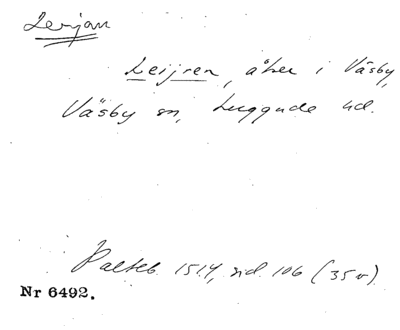 Lerjan
Leijren, åker i Väsby,
Väsby sn, Luggude hd.
Palteb. 1514, sid. 106 (35v).
Nr 6492.